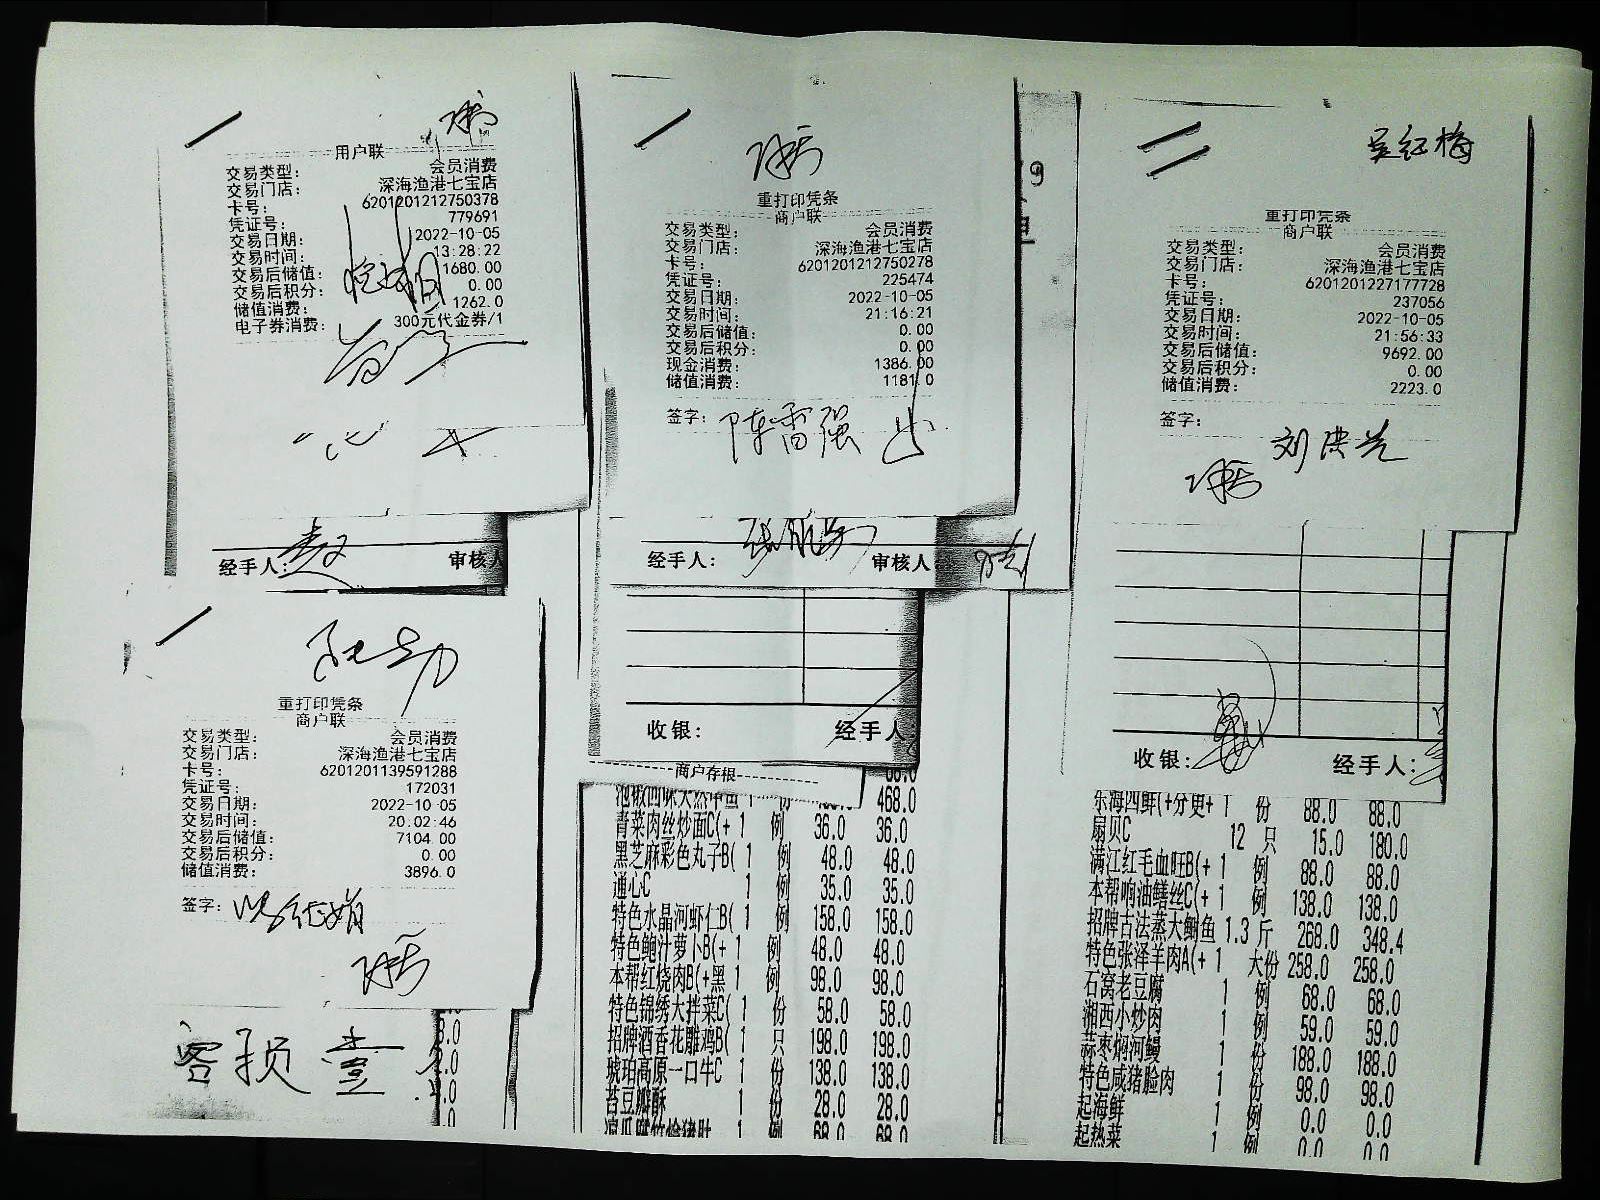 用户联
交易类型： 会员消费
交易门店： 深海渔港七宝店
卡号： 6201201212750378
凭证号： 779691
交易日期： 2022-10-05
交易时间： 13:28:22
交易后储值： 1680.00
交易后积分： 0.00
储值消费： 1262.0
电子券消费： 300元代金券/1
经手人： 审核人
重打印凭条
商户联
交易类型： 会员消费
交易门店： 深海渔港七宝店
卡号： 6201201212750278
凭证号： 225474
交易日期： 2022-10-05
交易时间： 21:16:21
交易后储值： 0.00
交易后积分： 0.00
现金消费： 1386.00
储值消费： 1181.0
签字： 陈雷强
经手人： 审核人
收银： 经手人
吴红梅
重打印凭条
商户联
交易类型： 会员消费
交易门店： 深海渔港七宝店
卡号： 6201201227177728
凭证号： 237056
交易日期： 2022-10-05
交易时间： 21:56:33
交易后储值： 9692.00
交易后积分： 0.00
储值消费： 2223.0
签字：
刘洪兰
收银： 经手人：
重打印凭条
商户联
交易类型： 会员消费
交易门店： 深海渔港七宝店
卡号： 6201201139591288
凭证号： 172031
交易日期： 2022-10-05
交易时间： 20:02:46
交易后储值： 7104.00
交易后积分： 0.00
储值消费： 3896.0
签字：
客损 壹
商户存根
468.0
青菜肉丝炒面C(+ 1 例 36.0 36.0
黑芝麻彩色丸子B( 1 例 48.0 48.0
通心C 1 例 35.0 35.0
特色水晶河虾仁B( 1 例 158.0 158.0
特色鲍汁萝卜B(+ 1 例 48.0 48.0
本帮红烧肉B(+黑 1 例 98.0 98.0
特色锦绣大拌菜C( 1 份 58.0 58.0
招牌酒香花雕鸡B( 1 只 198.0 198.0
琥珀高原一口牛C 1 份 138.0 138.0
苔豆瓣酥 1 份 28.0 28.0
1 例 68.0 68.0
东海四鲜(+分更+ 1 份 88.0 88.0
扇贝C 12 只 15.0 180.0
满江红毛血旺B(+ 1 例 88.0 88.0
本帮响油鳝丝C(+ 1 例 138.0 138.0
招牌古法蒸大鲥鱼 1.3 斤 268.0 348.4
特色张泽羊肉A(+ 1 大份 258.0 258.0
石窝老豆腐 1 例 68.0 68.0
湘西小炒肉 1 例 59.0 59.0
蒜枣焖河鳗 1 份 188.0 188.0
特色咸猪脸肉 1 份 98.0 98.0
起海鲜 1 例 0.0 0.0
起热菜 1 例 0.0 0.0